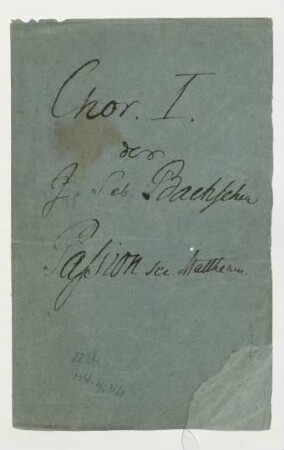 Chor. I.
der
J. Seb. Bachschen
Passion sec. Matthaeum.
22 St.